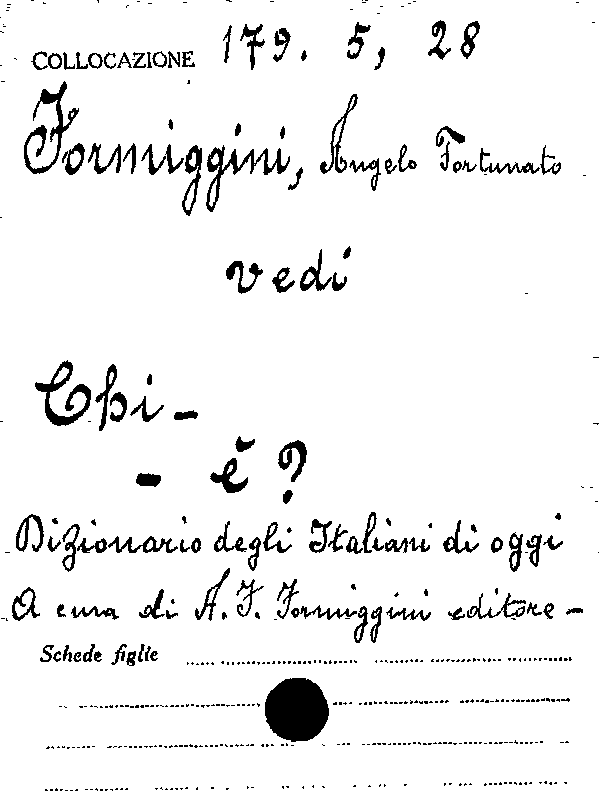 COLLOCAZIONE 179. 5, 28
Formiggini, Angelo Fortunato
vedi
Chi -
- è ?
Dizionario degli Italiani di oggi
A cura di A. F. Formiggini editore -
Schede figlie